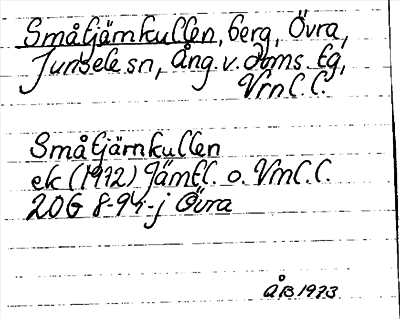 Småtjärnkullen, berg, Övra,
Junsele sn, Ång. v. doms. tg,
Vrnl.l.
Småtjärnkullen
ek (1972) Jämtl. o. Vrnl.l.
20G 8-9 i-j Övra
ÅB 1973